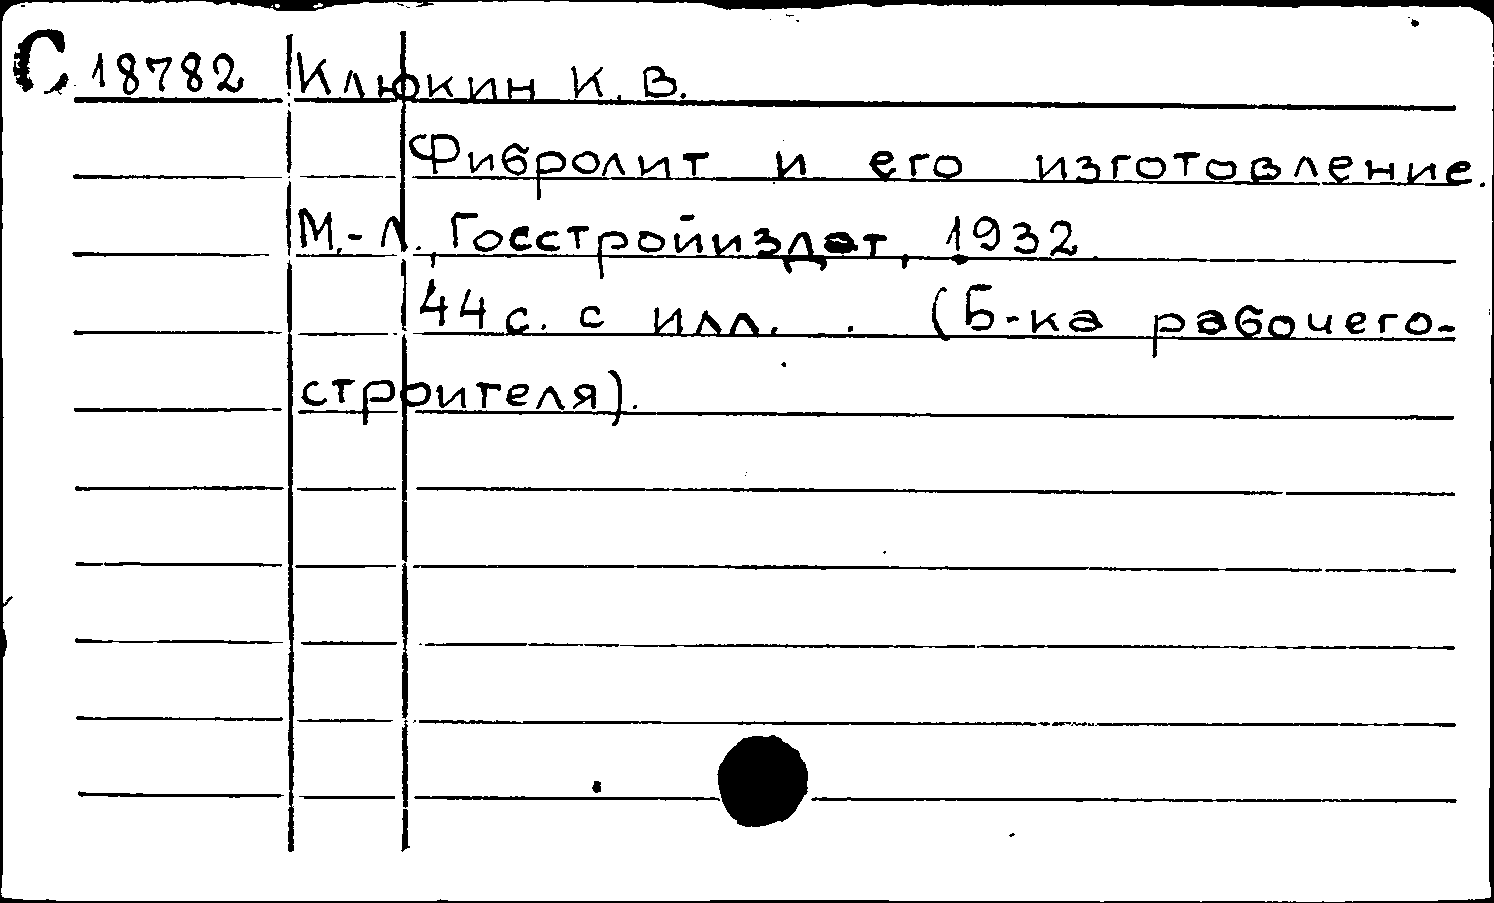 С 18782 Клюкин К. В.
Фибролит и его изготовление.
М.-Л., Госстройиздат, 1932.
44 с. с илл. . (Б-ка рабочего-
строителя).